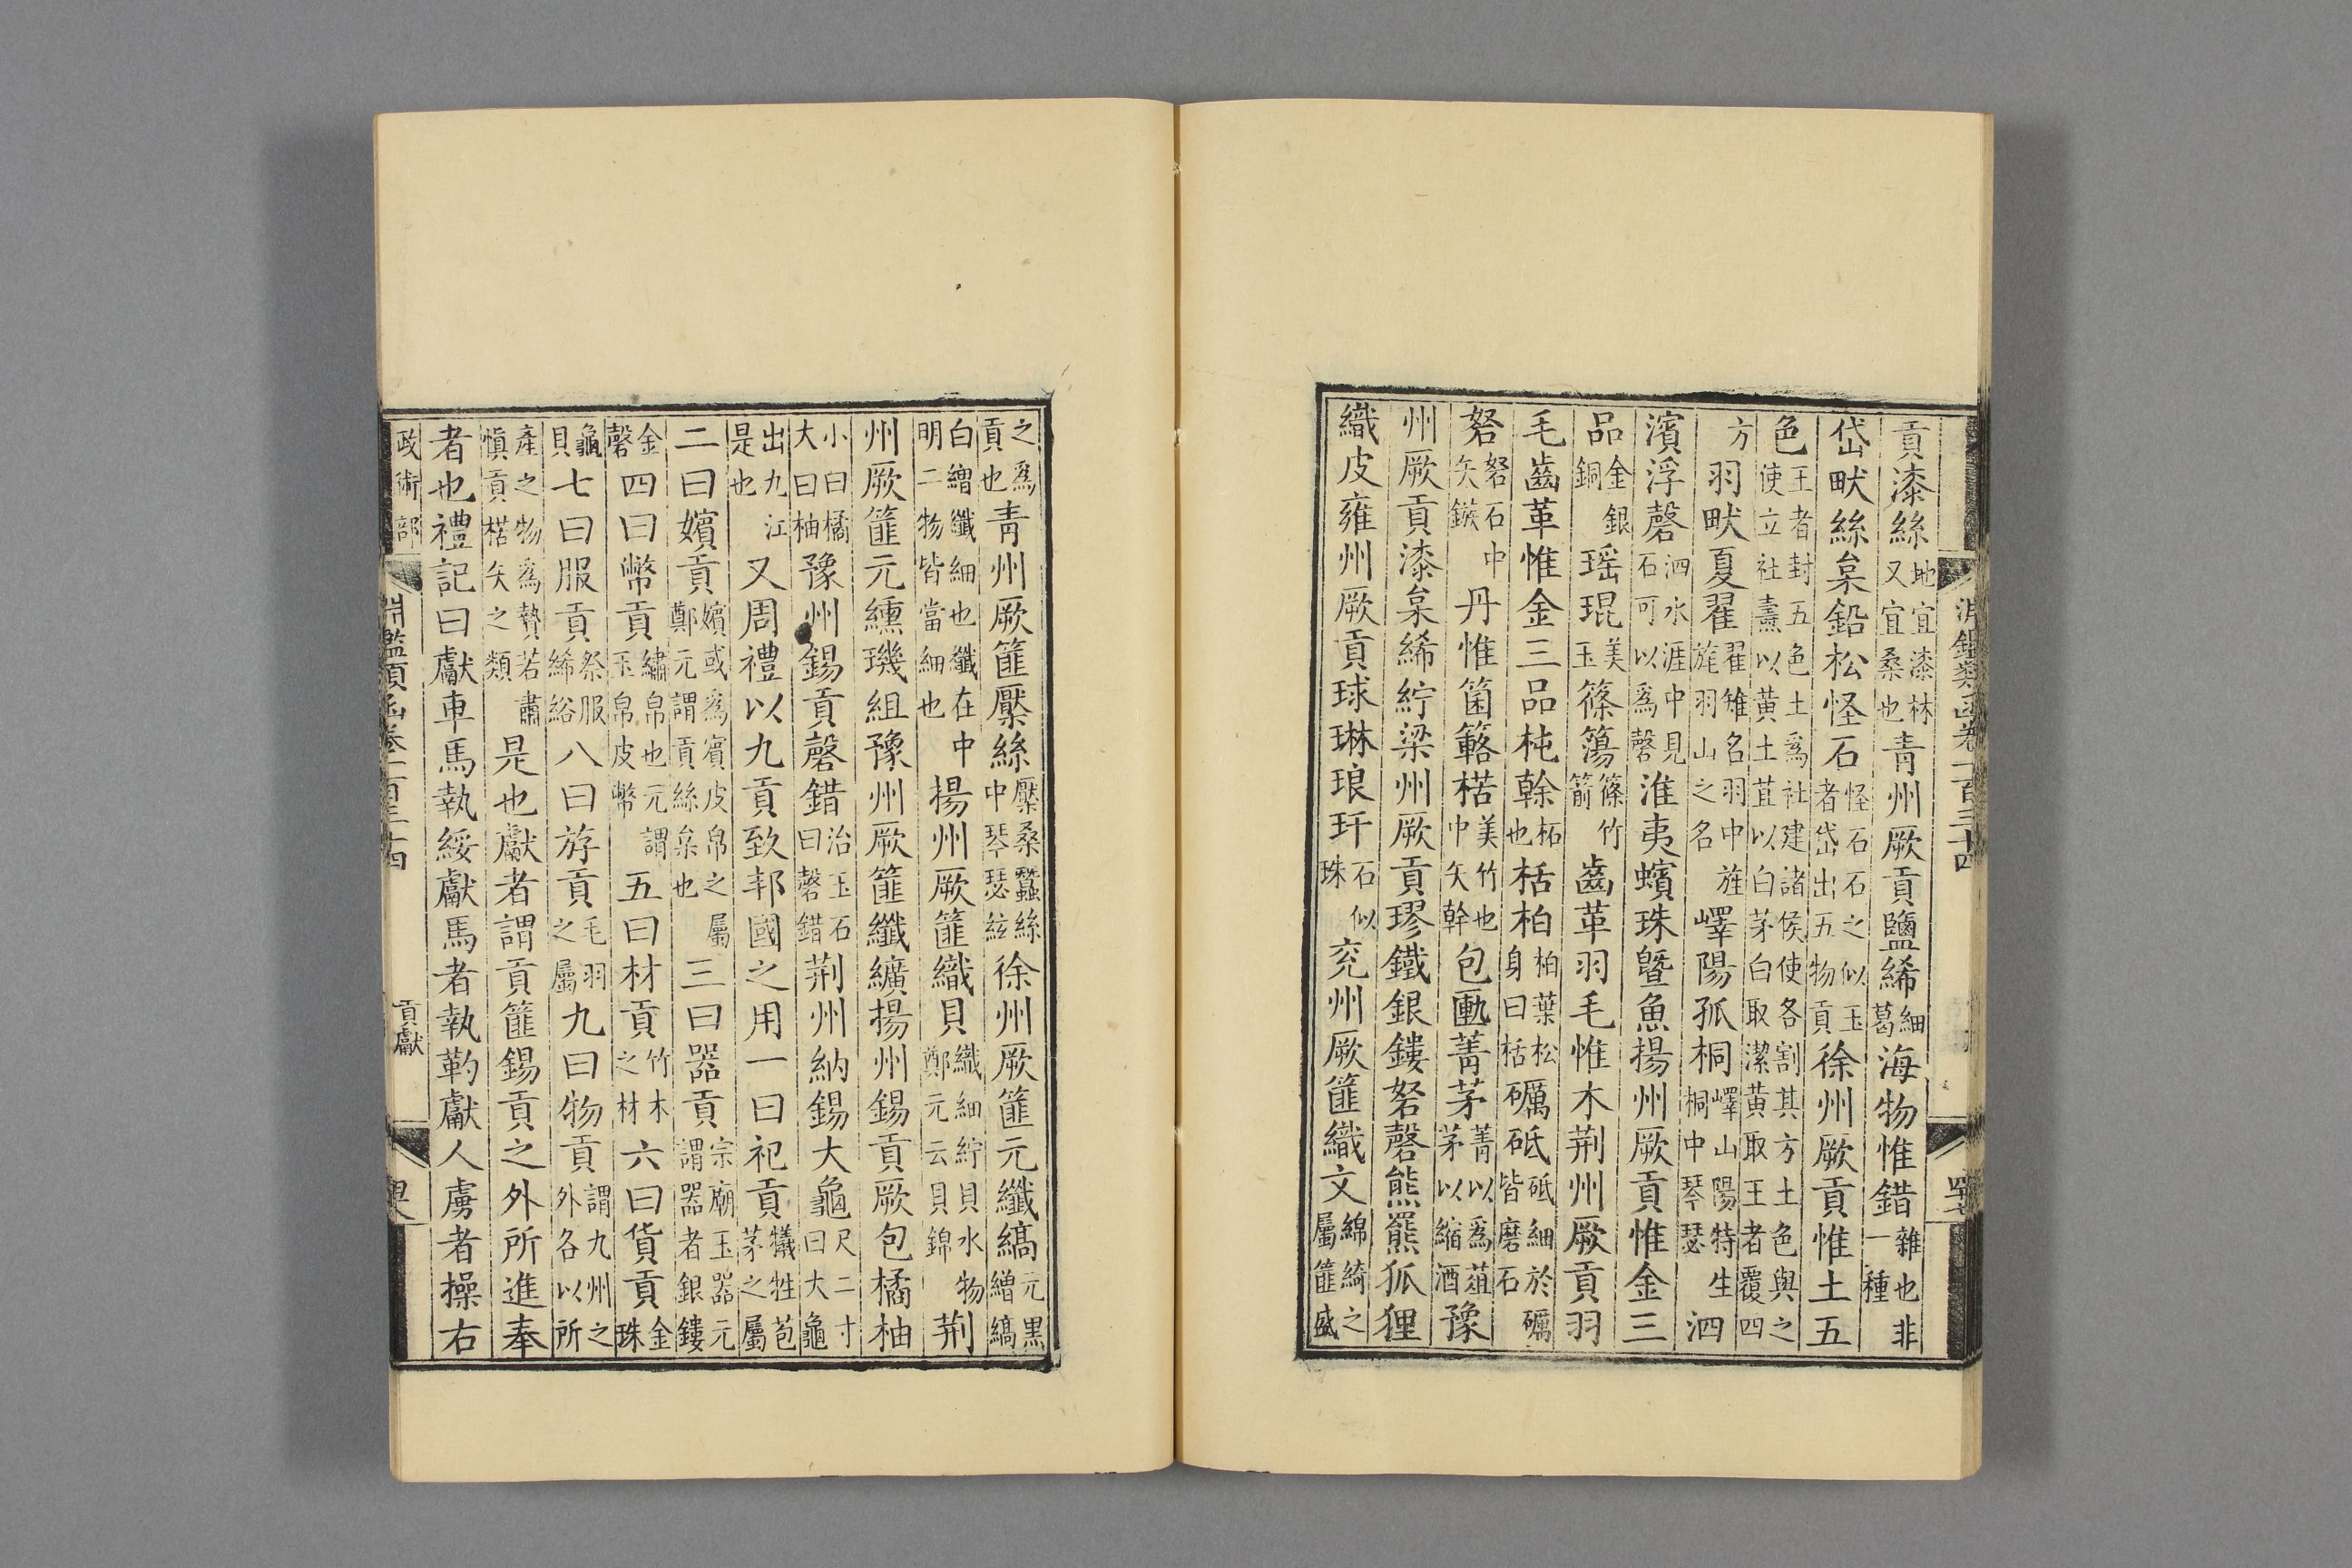 貢漆絲地宜漆林又宜桑也青州厥貢鹽絺細葛海物惟錯雜也非一種
岱畎絲枲鉛松怪石怪石石之似玉者岱出五物貢徐州厥貢惟土五
色王者封五色土爲社建諸侯使各割其方土色與之使立社燾以黃土苴以白茅白取潔黃取王者覆四
方羽畎夏翟翟雉名羽中旌旄羽山之名嶧陽孤桐嶧山陽特生桐中琴瑟泗
濱浮磬泗水涯中見石可以爲磬淮夷蠙珠曁魚揚州厥貢惟金三
品金銀銅瑶琨美玉篠簜篠竹箭齒革羽毛惟木荆州厥貢羽
毛齒革惟金三品杶榦柘也栝柏柏葉松身曰栝礪砥砥細於礪皆磨石
砮砮石中矢鏃丹惟箘簵楛美竹也中矢幹包匭菁茅菁以爲葅茅以縮酒豫
州厥貢漆枲絺紵梁州厥貢璆鐵銀鏤砮磬熊羆狐狸
織皮雍州厥貢球琳琅玕石似珠兖州厥篚織文綿綺之屬篚盛
之爲貢也青州厥篚檿絲檿桑蠶絲中琴瑟絃徐州厥篚元纖縞元黑繒縞
白繒纖細也纖在中明二物皆當細也揚州厥篚織貝織細紵貝水物鄭元云貝錦荆
州厥篚元纁璣組豫州厥篚纖纊揚州錫貢厥包橘柚
小曰橘大曰柚豫州錫貢磬錯治玉石曰磬錯荆州納錫大龜尺二寸曰大龜
出九江是也又周禮以九貢致邦國之用一曰祀貢犧牲苞茅之屬
二曰嬪貢嬪或爲賓皮帛之屬鄭元謂貢絲枲也三曰器貢宗廟玉器元謂器者銀鏤
金磬四曰幣貢繡帛也元謂玉帛皮幣五曰材貢竹木之材六曰貨貢金珠
龜貝七曰服貢祭服絺綌八曰斿貢毛羽之屬九曰物貢謂九州之外各以所
產之物爲贄若肅愼貢楛矢之類是也獻者謂貢篚錫貢之外所進奉
者也禮記曰獻車馬執綏獻馬者執靮獻人虜者操右
政術部
淵鑑類函卷一百三十四
貢獻